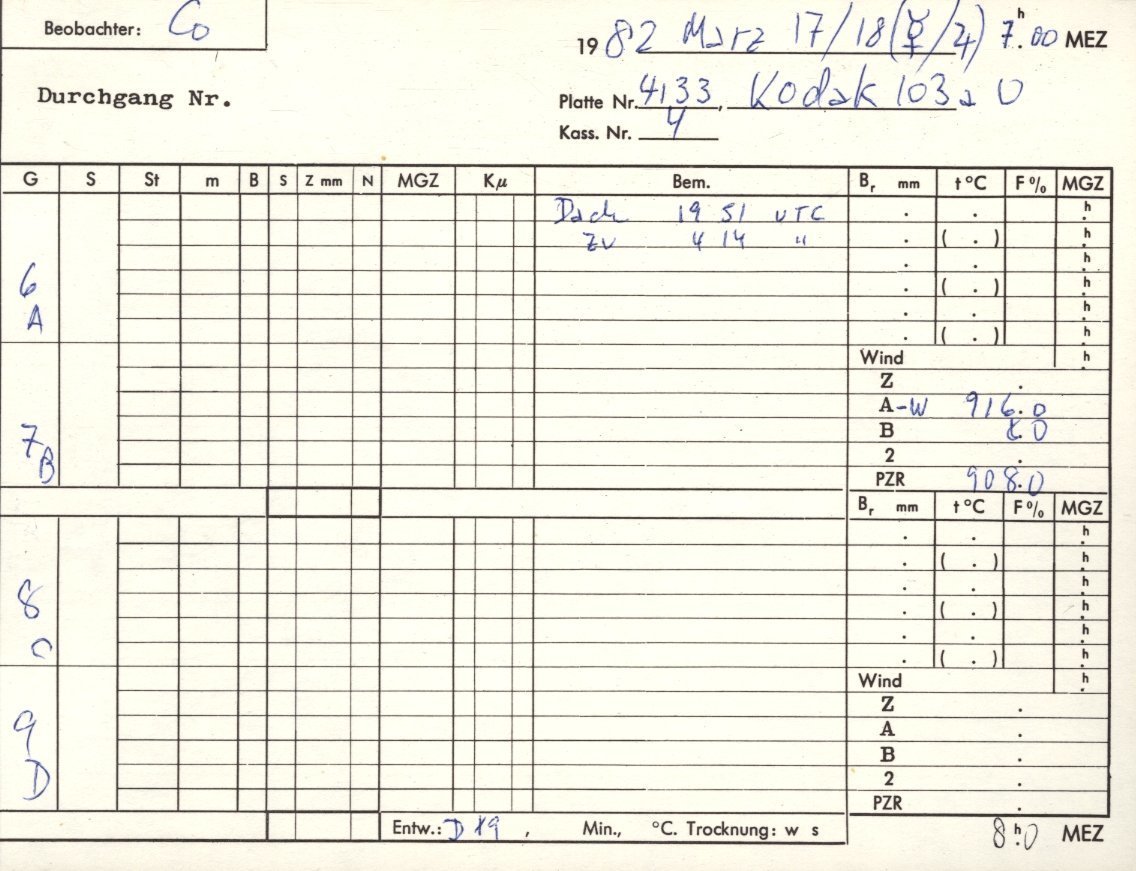 Beobachter: Co
1982 März 17/18 (☿/♃) 7.h00 MEZ
Durchgang Nr.
Platte Nr. 4133, Kodak 103a O
Kass. Nr. 4
G S St m B S Z mm N MGZ Kμ Bem. Br mm t °C F% MGZ
Dach 19 51 UTC . . h.
zu 4 14 " . ( . ) h.
. . h.
6 . ( . ) h.
A . . h.
. ( . ) h.
Wind h.
Z .
A-W 916.0
7 B 8.0
B 2 .
PZR 908.0
Br mm t °C F% MGZ
. . h.
. ( . ) h.
. . h.
8 . ( . ) h.
C . . h.
. ( . ) h.
Wind h.
Z .
9 A .
B .
D 2 .
PZR .
Entw.: D 19, Min., °C. Trocknung: w s
8.h0 MEZ